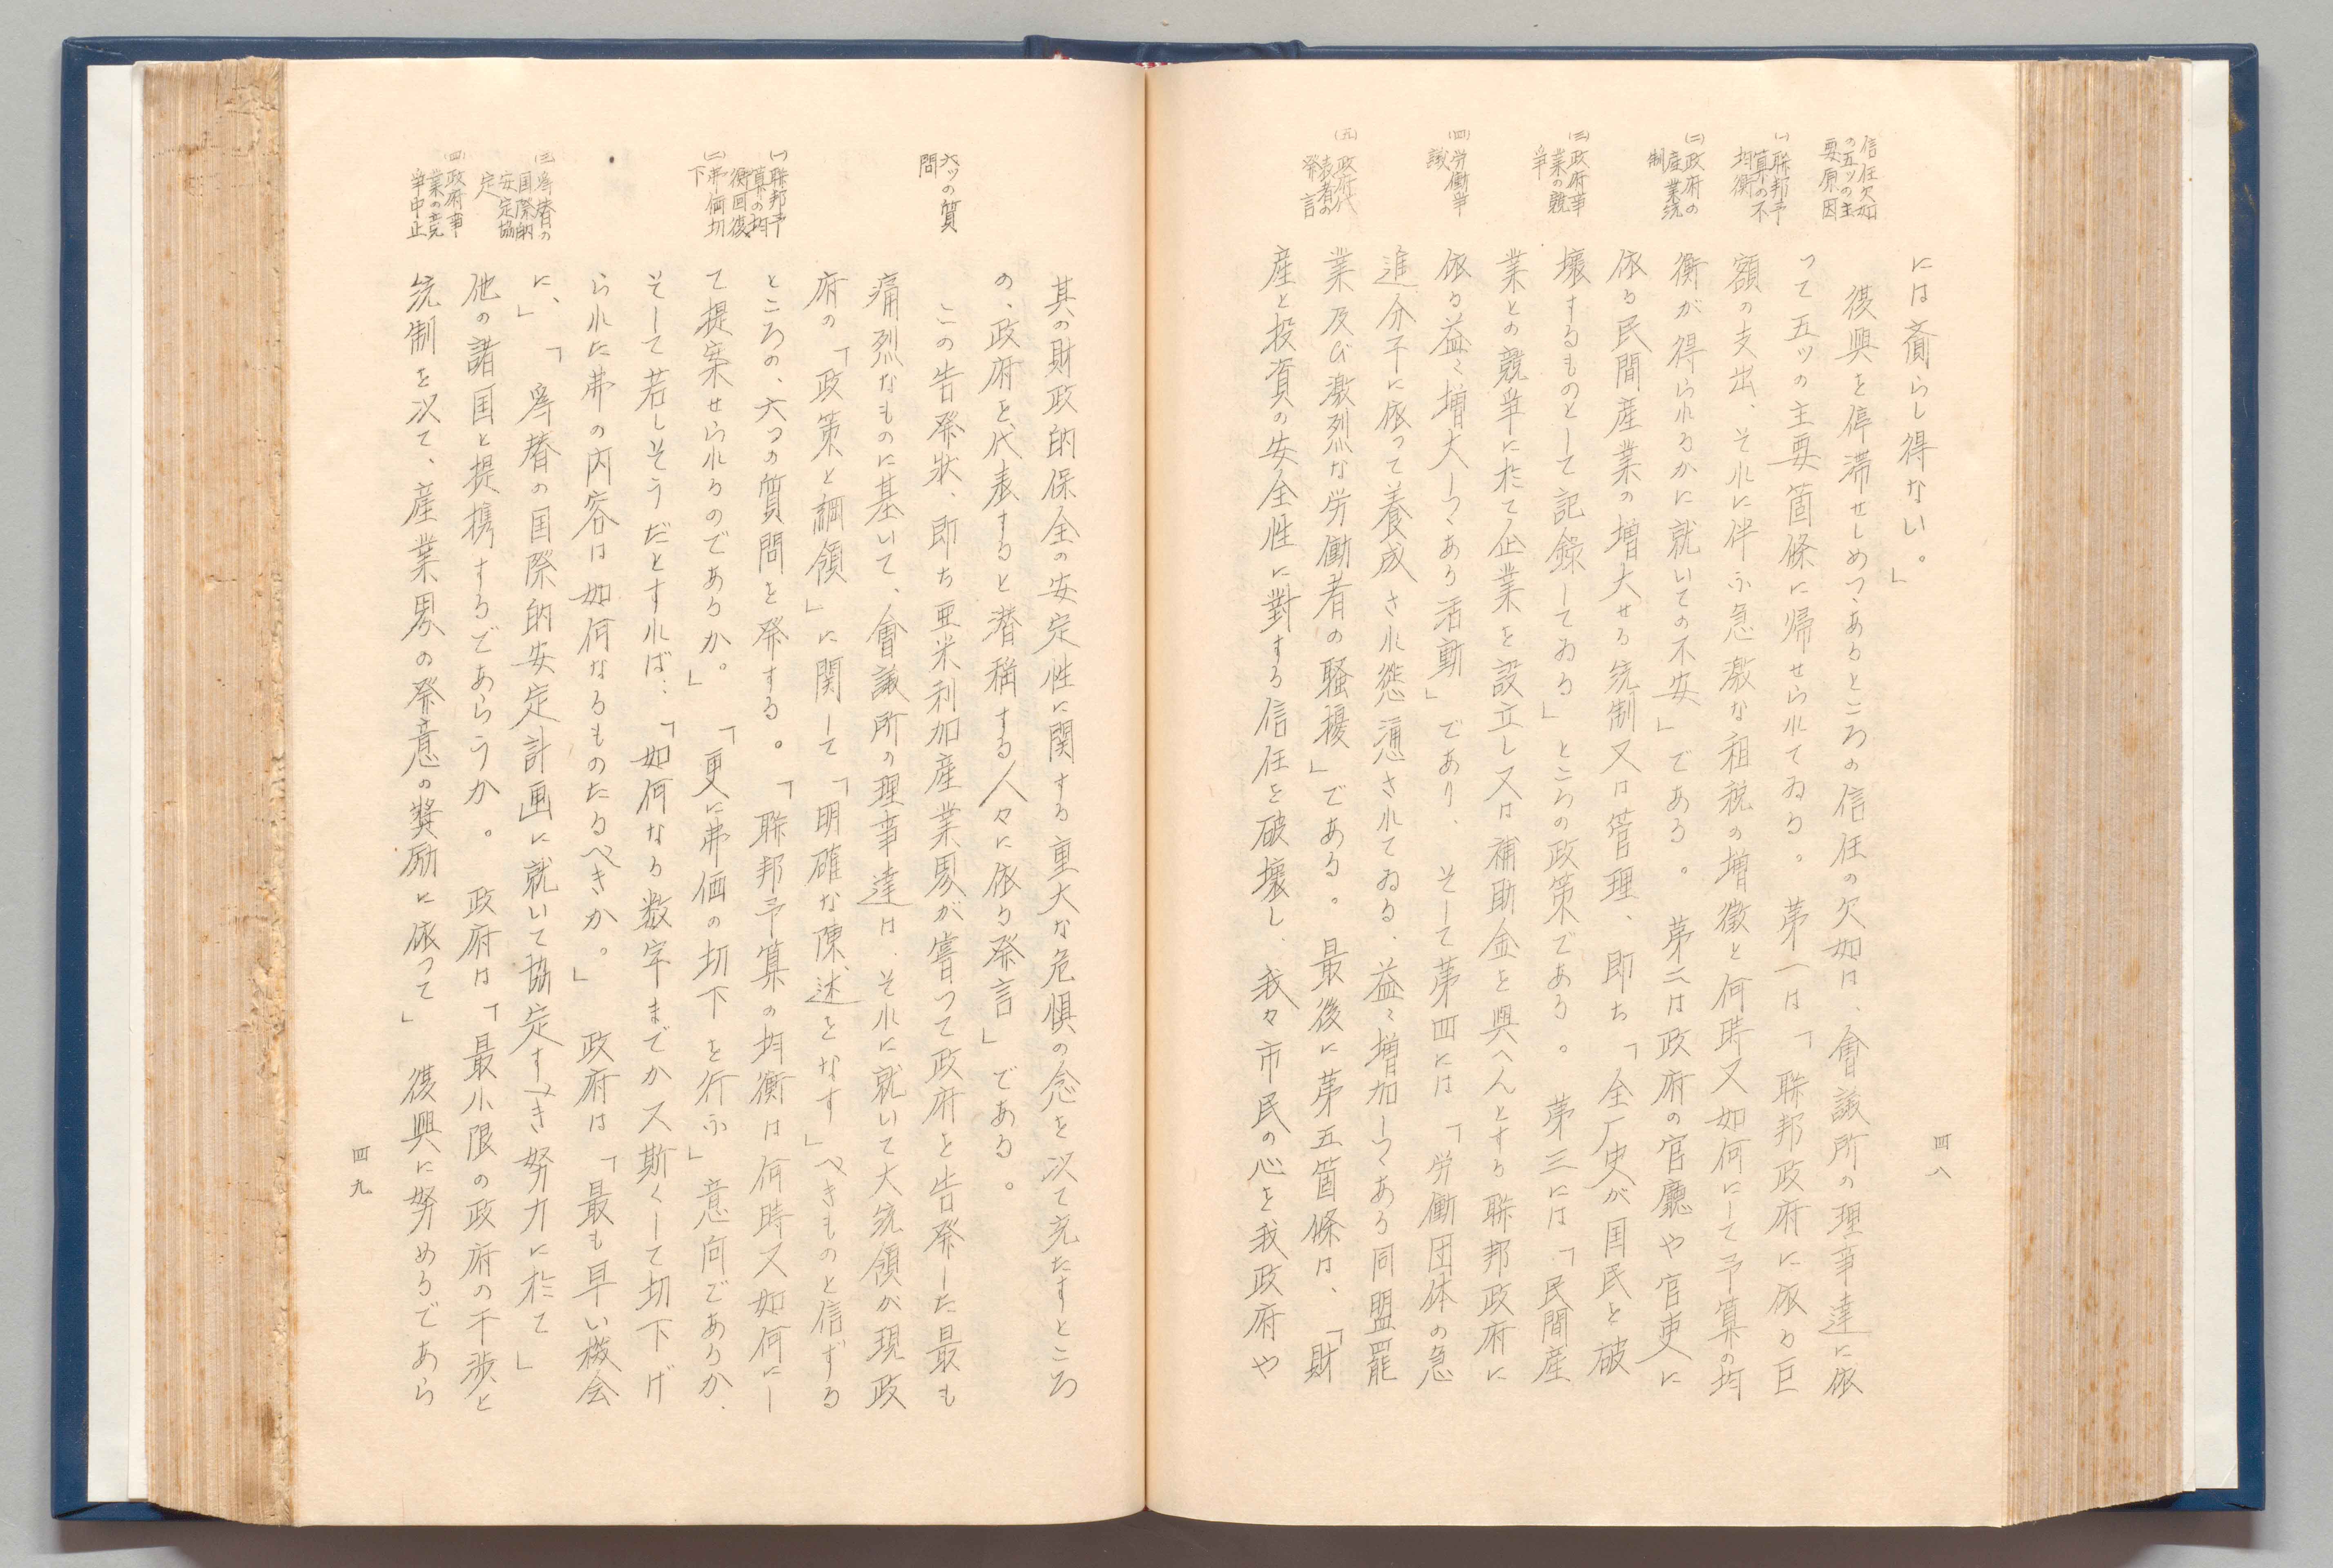 信任欠如
の五ツの主
要原因
(一)聯邦予
算の不
均衡
(二)政府の
産業統
制
(三)政府事
業の競
争
(四)労働争
議
(五)政府代
表者の
発言
には齎らし得ない。」
復興を停滞せしめつゝあるところの信任の欠如は、會議所の理事達に依
つて五ツの主要箇條に帰せられてゐる。第一は「聯邦政府に依る巨
額の支出、それに伴ふ急激な租税の増徴と何時又如何にして予算の均
衡が得られるかに就いての不安」である。第二は政府の官廳や官吏に
依る民間産業の増大せる統制又は管理、即ち「全厂史が国民を破
壊するものとして記錄してゐる」ところの政策である。第三には「民間産
業との競争に於て企業を設立し又は補助金を與へんとする聯邦政府に
依る益々増大しつゝある活動」であり、そして第四には「労働団体の急
進分子に依つて養成され慫慂されてゐる、益々増加しつゝある同盟罷
業及び激烈な労働者の騒擾」である。最後に第五箇條は、「財
産と投資の安全性に對する信任を破壊し、我々市民の心を我政府や
四八
六ツの質
問
(一)聯邦予
算の均
衡回復
(二)弗価切
下
(三)爲替の
国際的
安定協
定
(四)政府事
業の競
争中止
其の財政的保全の安定性に関する重大な危惧の念を以て充たすところ
の、政府を代表すると潜稱する人々に依る発言」である。
この告発狀、即ち亜米利加産業界が嘗つて政府を告発した最も
痛烈なものに基いて、會議所の理事達は、それに就いて大統領が現政
府の「政策と綱領」に関して「明確な陳述をなす」べきものと信ずる
ところの、六つの質問を発する。「聯邦予算の均衡は何時又如何にし
て提案せられるのであるか。」「更に弗価の切下を行ふ」意向でありか、
そして若しそうだとすれば…「如何なる数字までか又斯くして切下げ
られた弗の内容は如何なるものたるべきか。」政府は「最も早い機会
に、」「爲替の国際的安定計画に就いて協定すべき努力に於て」
他の諸国と提携するであらうか。政府は「最小限の政府の干渉と
統制を以て、産業界の発意の奬励に依つて」復興に努めるであら
四九